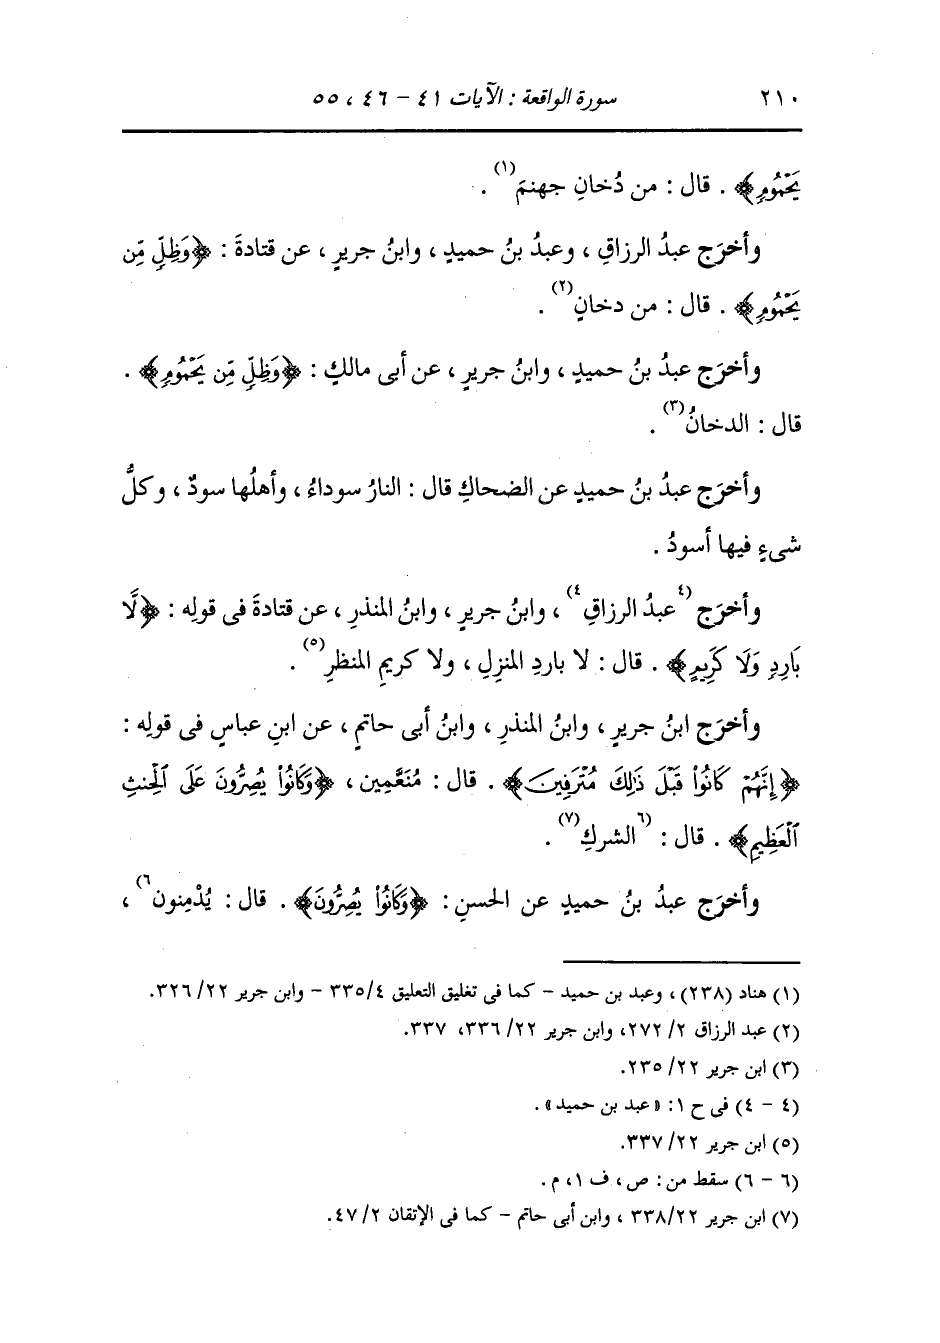 ٢١٠ سورة الواقعة : الآيات ٤١ - ٤٦ ، ٥٥
يَحْمُومٍ﴾ . قال : من دُخانِ جهنمَ(١) .
وأخرَج عبدُ الرزاقِ ، وعبدُ بنُ حميدٍ ، وابنُ جريرٍ ، عن قتادةَ : ﴿وَظِلٍّ مِّن
يَحْمُومٍ﴾ . قال : من دخانٍ(٢) .
وأخرَج عبدُ بنُ حميدٍ ، وابنُ جريرٍ ، عن أبى مالكٍ : ﴿وَظِلٍّ مِّن يَحْمُومٍ﴾ .
قال : الدخانُ(٣) .
وأخرَج عبدُ بنُ حميدٍ عن الضحاكِ قال : النارُ سوداءُ ، وأهلُها سودٌ ، وكلُّ
شىءٍ فيها أسودُ .
وأخرَج (٤عبدُ الرزاقِ٤) ، وابنُ جريرٍ ، وابنُ المنذرِ ، عن قتادةَ فى قولِه : ﴿لَّا
بَارِدٍ وَلَا كَرِيمٍ﴾ . قال : لا باردِ المنزِلِ ، ولا كريمِ المنظرِ(٥) .
وأخرَج ابنُ جريرٍ ، وابنُ المنذرِ ، وابنُ أبى حاتمٍ ، عن ابنِ عباسٍ فى قولِه :
﴿إِنَّهُمْ كَانُوا۟ قَبْلَ ذَٰلِكَ مُتْرَفِينَ﴾ . قال : مُنَعَّمِين ، ﴿وَكَانُوا۟ يُصِرُّونَ عَلَى ٱلْحِنثِ
ٱلْعَظِيمِ﴾ . قال : (٦الشركِ(٧) .
وأخرَج عبدُ بنُ حميدٍ عن الحسنِ : ﴿وَكَانُوا۟ يُصِرُّونَ﴾ . قال : يُدْمِنون٦) ،
(١) هناد (٢٣٨) ، وعبد بن حميد - كما فى تغليق التعليق ٤/ ٣٣٥ - وابن جرير ٢٢/ ٣٢٦.
(٢) عبد الرزاق ٢/ ٢٧٢، وابن جرير ٢٢/ ٣٣٦، ٣٣٧.
(٣) ابن جرير ٢٢/ ٢٣٥.
(٤ - ٤) فى ح ١: «عبد بن حميد» .
(٥) ابن جرير ٢٢/ ٣٣٧.
(٦ - ٦) سقط من : ص ، ف ١، م .
(٧) ابن جرير ٢٢/ ٣٣٨ ، وابن أبى حاتم - كما فى الإتقان ٢/ ٤٧.